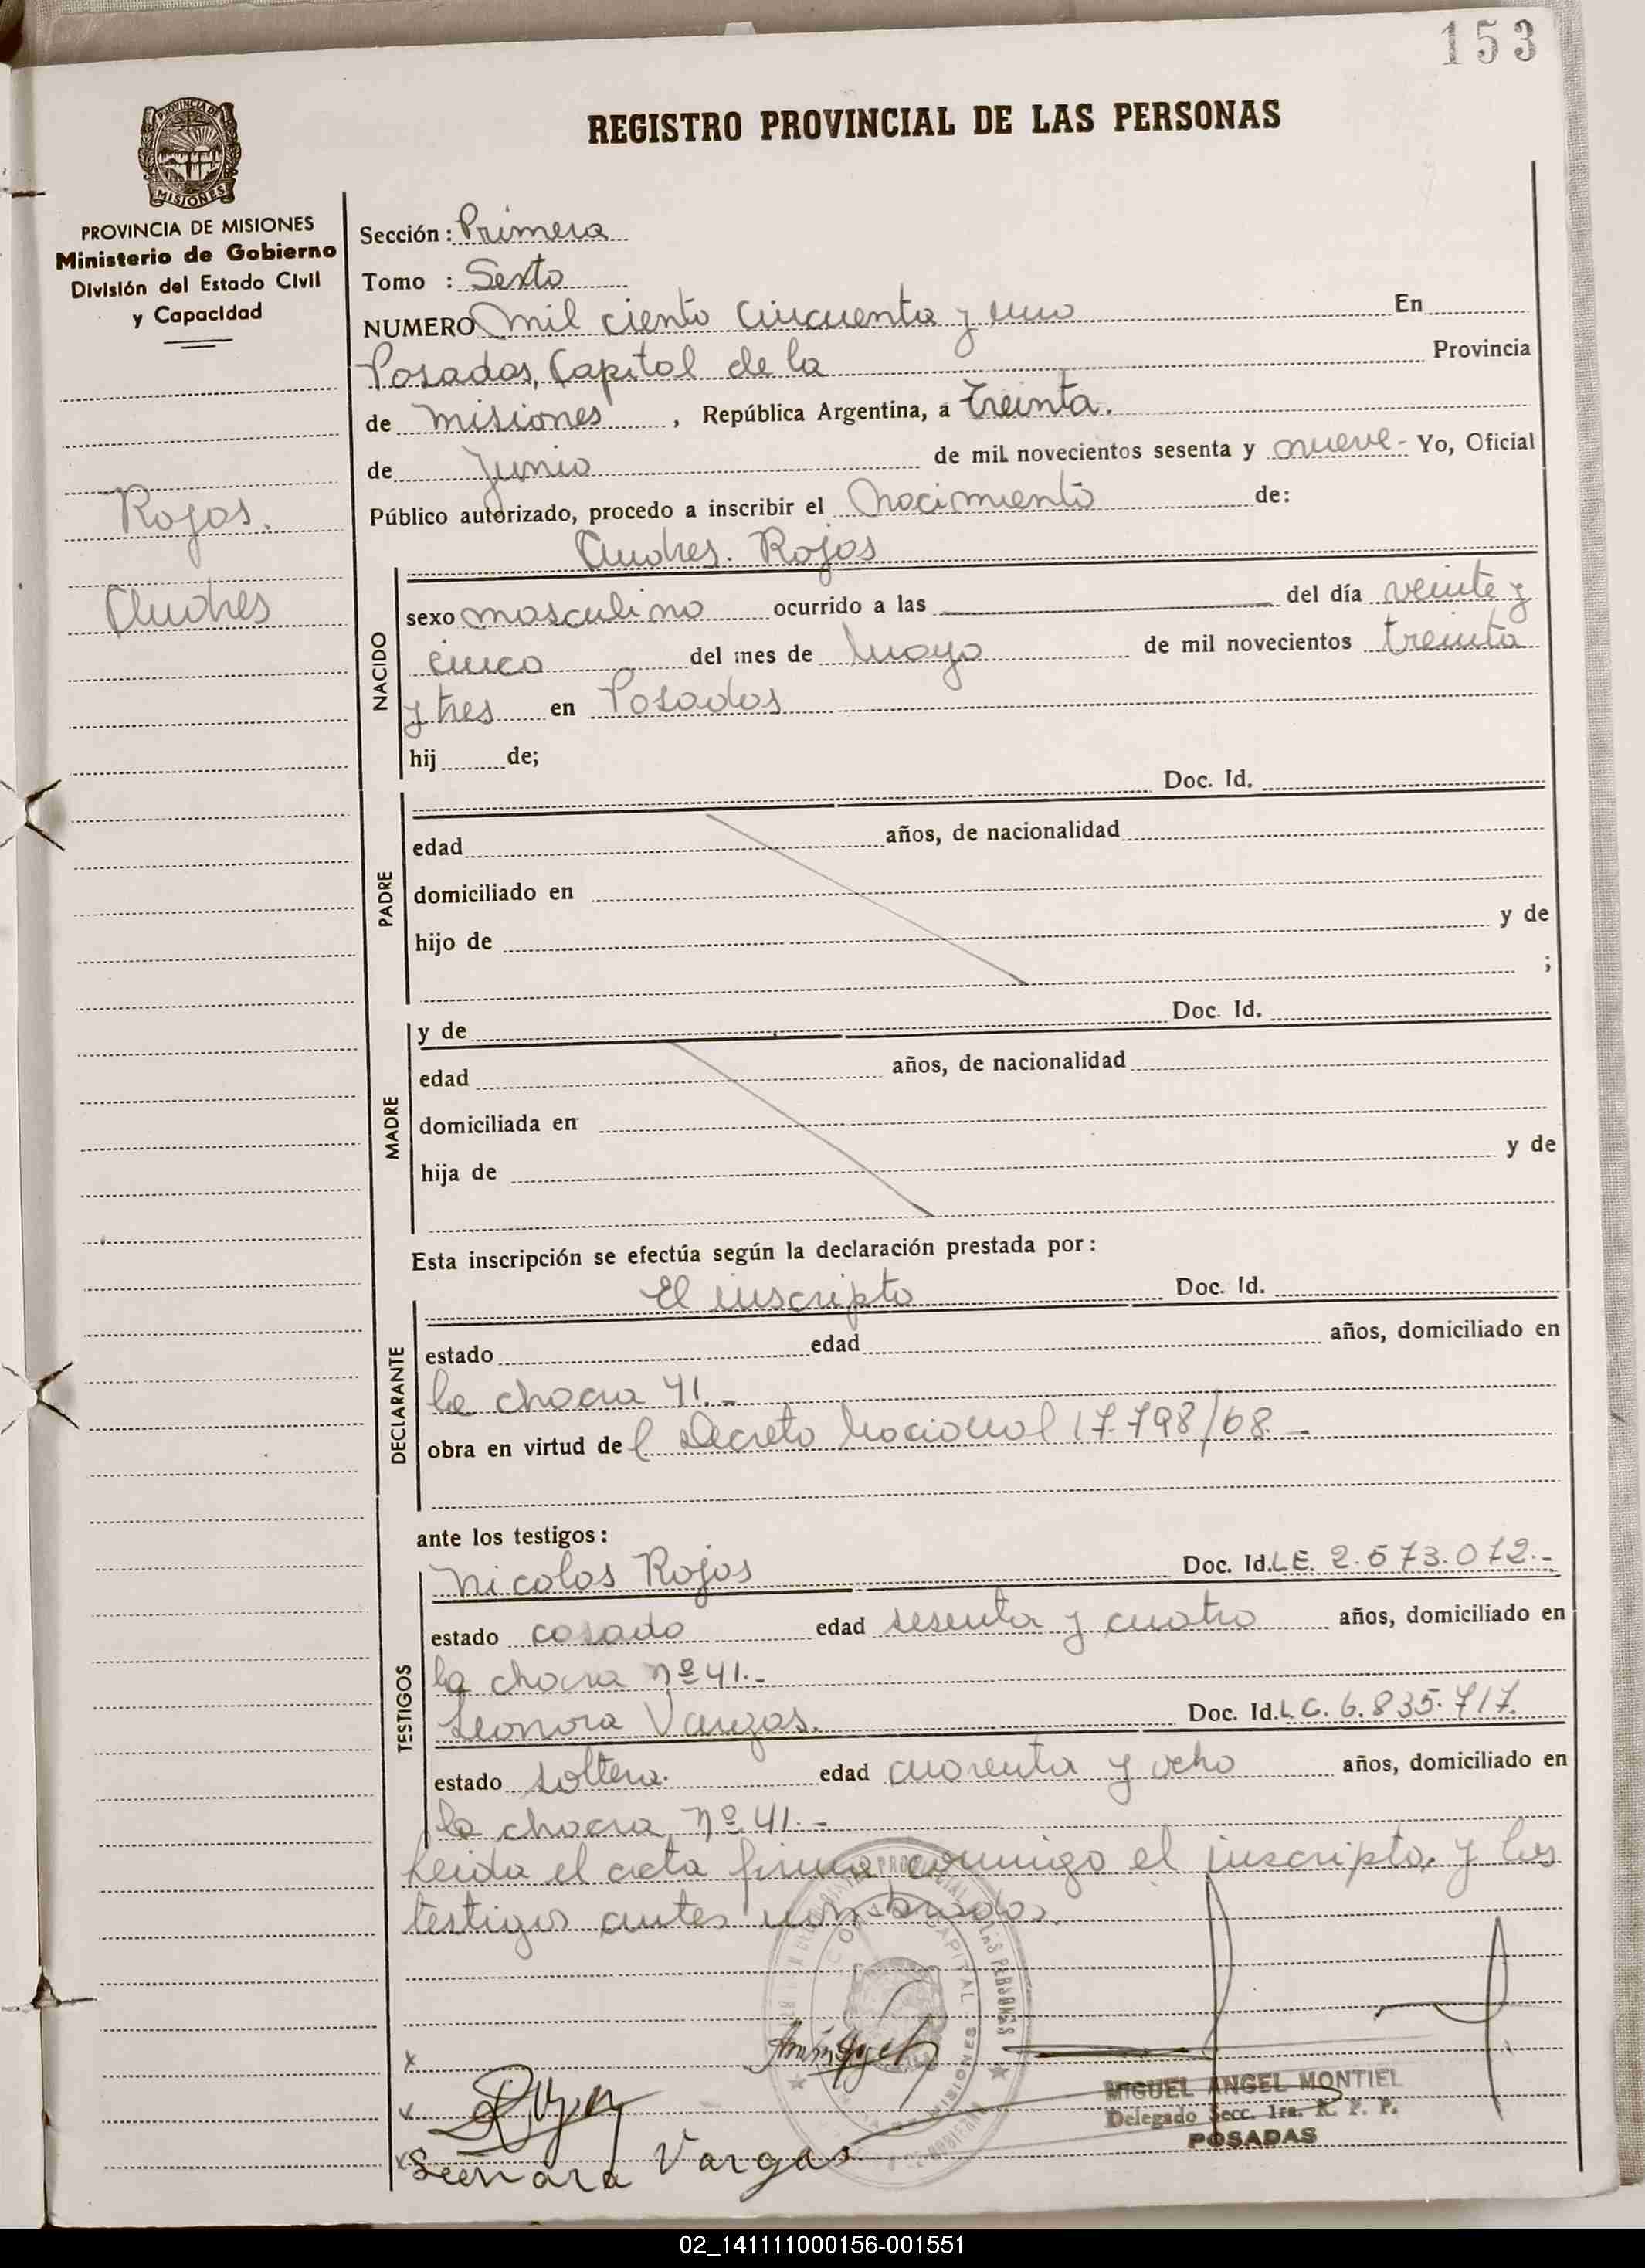 153
REGISTRO PROVINCIAL DE LAS PERSONAS
PROVINCIA DE MISIONES
Ministerio de Gobierno
División del Estado Civil
y Capacidad
Rojas.
Andres
Sección: Primera
Tomo : Sexto
NUMERO mil ciento cincuenta y uno En
Posadas, Capital de la Provincia
de misiones , República Argentina, a treinta.
de Junio de mil novecientos sesenta y nueve - Yo, Oficial
Público autorizado, procedo a inscribir el nacimiento de:
Andres. Rojas
NACIDO
sexo masculino ocurrido a las del día veinte y
cinco del mes de mayo de mil novecientos treinta
y tres en Posadas
hij de;
PADRE
Doc. Id.
edad años, de nacionalidad
domiciliado en
hijo de y de
;
MADRE
y de Doc. Id.
edad años, de nacionalidad
domiciliada en
hija de y de
Esta inscripción se efectúa según la declaración prestada por:
DECLARANTE
El inscripto Doc. Id.
estado edad años, domiciliado en
la chacra 41.-
obra en virtud del Decreto nacional 17.798/68.-
ante los testigos:
TESTIGOS
Nicolas Rojas Doc. Id. L.E. 2.573.072.-
estado casado edad sesenta y cuatro años, domiciliado en
la chacra nº 41.-
Leonora Vargas. Doc. Id. L C. 6.835.717.
estado soltera. edad cuarenta y ocho años, domiciliado en
la chacra nº 41.-
Leida el acta firma conmigo el inscripto, y los
testigos antes nombrados.
CAPITAL
MISIONES
MIGUEL ANGEL MONTIEL
Delegado Secc. 1ra. R. P. P.
POSADAS
Vargas
02_141111000156-001551